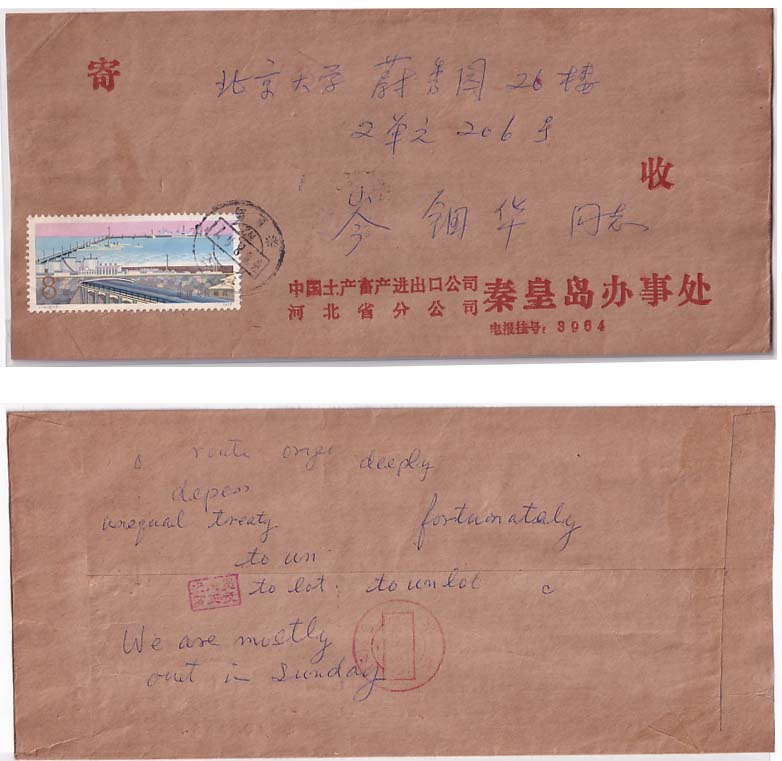 寄
北京大学 蔚秀园 26楼
2单元 206号
收
岑 钿 华 同志
中国土产畜产进出口公司
河北省分公司
秦皇岛办事处
电报挂号：3964
8
c route deeply
depen
unequal treaty fortunataly
to un
to lot. to unlot c
We are mostly
out in Sunday